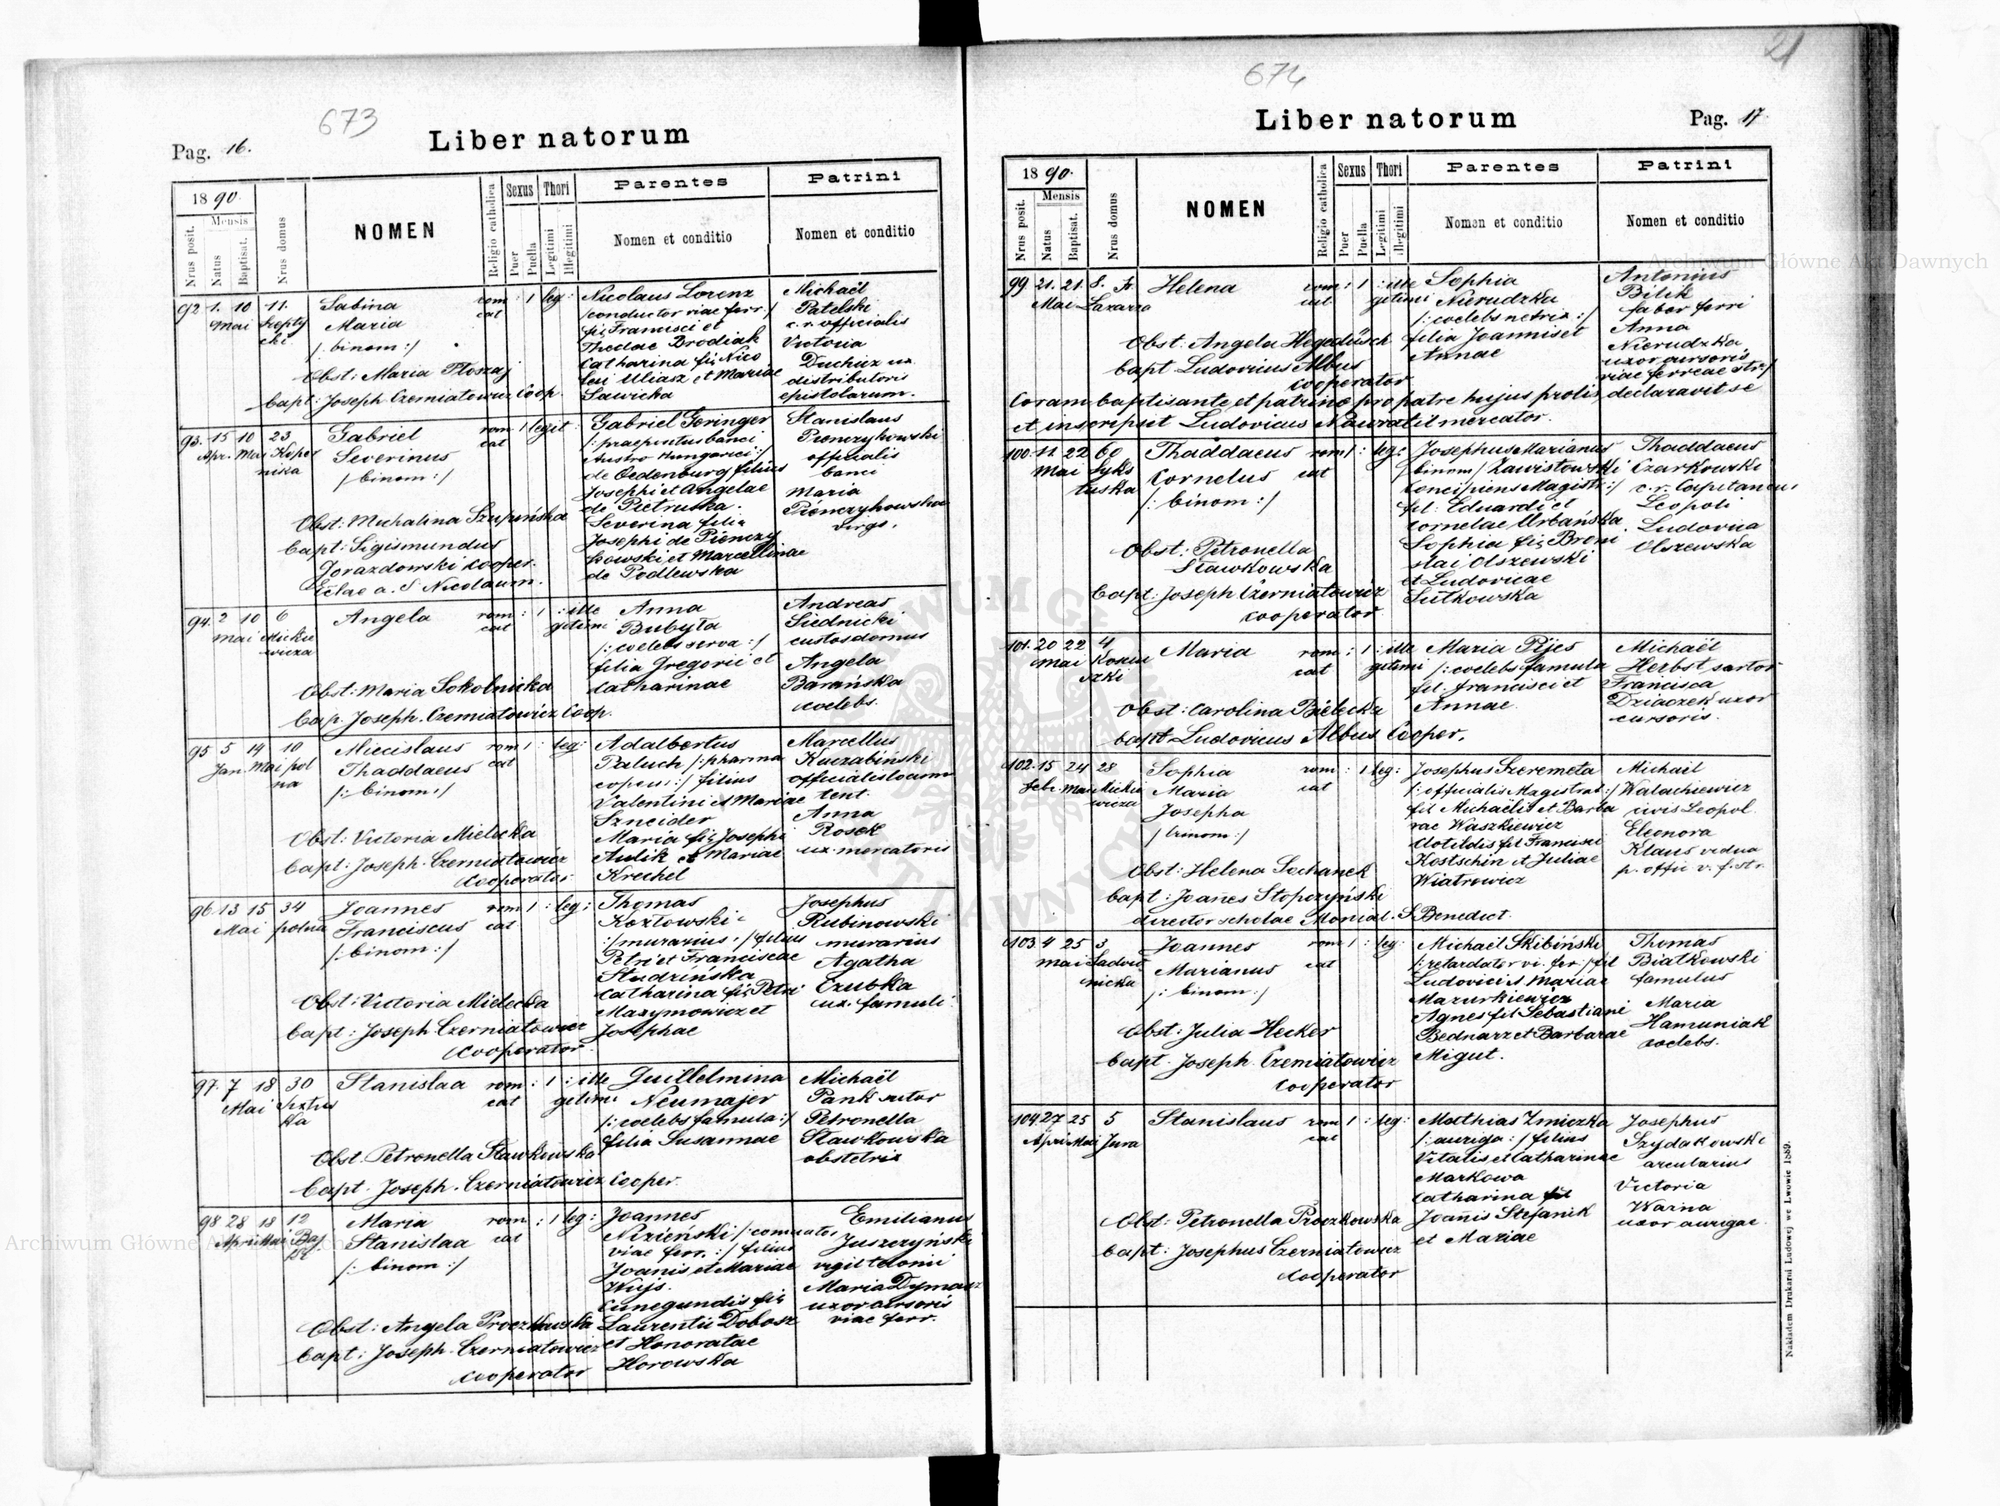 673
Pag. 16.
Liber natorum
1890.
Mensis
Nrus posit.
Natus
Baptisat.
Nrus domus
NOMEN
Religio catholica
Sexus
Puer
Puella
Thori
Legitimi
Illegitimi
Parentes
Nomen et conditio
Patrini
Nomen et conditio
92 1. 10 11. Sabina rom : 1 leg: Nicolaus Lorenz Michaël
Mai Szepty Maria cat /conductor viae ferr:/ Patelski
cki /: binom :/ fil: Francisci et c. r. officialis
Theclae Brodiak Victoria
Catharina fil: Nico Duchicz ux.
Obst: Maria Płoszaj lai Uliasz et Mariae distributoris
Bapt: Joseph Czerniatowicz Coop. Sawicka epistolarum.
93. 15 10 23 Gabriel rom 1 legit: Gabriel Geringer Stanislaus
Apr. Mai Koper Severinus cat /: praepositus banci Pienczykowski
nika / binom :/ Austro Hungarici :/ officialis
de Oedenburg filius banci
Josephi et Angelae Maria
Obst: Michalina Szupińska de Pietruska. Pienczykowska
Bapt: Sigismundus Severina filia virgo.
Gorazdowski cooper. Josephi de Pienczy
Eclae a. S Nicolaum. kowski et Marcellinae
de Podlewska
94. 2 10 6 Angela rom : 1 : ille Anna Andreas
Mai Mickie cat gitimi Bubyła Siednicki
wicza /: coelebs serva :/ custos domus
filia Gregorii et Angela
Obst: Maria Sokolnicka Catharinae Barańska
Bap. Joseph. Czerniatowicz Coop. coelebs.
95 5 14 10 Miecislaus rom 1 : leg: Adalbertus Marcellus
Jan. Mai pol Thaddaeus cat Paluch /: pharma Kaczabiński
na /: binom :/ copeus :/ filius officialis locum
Valentini et Mariae tent.
Szneider Anna
Obst: Victoria Mielecka Maria fil: Josephi Rosek
Bapt: Joseph. Czerniatowicz Aulik et Mariae ux. mercatoris
cooperator Krechel
96. 13 15 34 Joannes rom 1 : leg: Thomas Josephus
Mai polna Franciscus cat Kozłowski Rubinowski
/: binom :/ :/ murarius :/ filius murarius
Petri et Franciscae Agatha
Studzińska Czubka
Obst: Victoria Mielecka Catharina fil: Petri ux. famuli.
Bapt: Joseph. Czerniatowicz Maxymowicz et
cooperator. Josephae
97. 7 18 30 Stanislaa rom : 1 : ille Guillelmina Michaël
Mai Sixtus cat gitimi Neumajer Pank sutor
ka /: coelebs famula :/ Petronella
Obst. Petronella Sławkowska filia Susannae Sławkowska
Bapt. Joseph. Czerniatowicz Cooper. obstetrix
98 28 18 12 Maria rom : 1 leg: Joannes Emilianus
April Mai Baj Stanislaa cat Nizieński /: Juszczyński
ki /: binom :/ viae ferr. :/ filius vigil telonii
Joanis et Mariae Maria Dymacz
Wujs. uxor cursoris
Cunegundis fil: viae ferr.
Obst: Angela Proczkowska Laurentii Dobosz
Bapt: Joseph. Czerniatowicz et Honoratae
cooperator Horowska
674
21
Liber natorum
Pag. 17
1890.
Mensis
Nrus posit.
Natus
Baptisat.
Nrus domus
NOMEN
Religio catholica
Sexus
Puer
Puella
Thori
Legitimi
Illegitimi
Parentes
Nomen et conditio
Patrini
Nomen et conditio
99. 21. 21. 8. Helena rom : 1 : ille Sophia Antonius
Mai Lazarza cat gitimi Nierudzka Bilik
/: coelebs netrix :/ faber ferri
Obst: Angela Hegedüsch filia Joannis et Anna
Bapt Ludovicus Albus Annae Nierudzka
cooperator uxor cursoris
viae ferreae str:/
Coram baptisante et patrino pro patre hujus prolis declaravit se
et inscripsit Ludovicus Nawratil mercator.
100. 11. 22 60 Thaddaeus rom 1 : leg: Josephus Marianus Thaddaeus
Mai Syks Cornelus cat / binom / Zawistowski Czarkowski
tuska /: binom :/ Concipiens Magistr :/ c. r. Capitaneus
fil: Eduardi et Leopoli
Corneliae Urbańska. Ludovica
Obst: Petronella Sophia fil: Broni Olszewska
Sławkowska slai Olszewski
et Ludovicae
Bapt: Joseph Czerniatowicz Sutkowska
cooperator
101. 20 22 4 Maria rom : 1 : ille Maria Pijes Michaël
Mai Kosciu cat gitimi /: coelebs famula Herbst sartor
szki fil. Francisci et Francisca
Obst: Carolina Bielecka Annae. Dziaczek uxor
bapt Ludovicus Albus Cooper. cursoris.
102. 15 24 28 Sophia rom : 1 leg: Josephus Szeremeta Michaël
Febr. Mai Mickie Maria cat /: officialis Magistrat :/ Walachiewicz
wicza Josepha fil Michaëlis et Barba civis Leopol.
/ trinom :/ rae Waszkiewicz Eleonora
Clotildis fil Francisci Klaus vidua
Obst: Helena Sochanek Kostschin et Juliae p. offic v. f. str.
Bapt: Joañes Stopczyński Wiatrowicz
director scholae Monial: S. Benedict.
103. 4 25 3 Joannes rom 1 : leg: Michaël Skibiński Thomas
Mai Sadow Marianus cat /: retardator vi. fer: / fil Białkowski
nicka /: binom :/ Ludovici et Mariae famulus
Mazurkiewicz Maria
Obst: Julia Hecker Agnes fil Sebastiani Hamuniak
Bapt. Joseph. Czerniatowicz Bednarz et Barbarae coelebs.
cooperator Migut.
104. 27 25 5 Stanislaus rom 1 : leg: Mathias Zmiczka Josephus
April Mai Jura cat /: auriga :/ filius Szydakowski
Vitalis et Catharinae arcularius
Markowa Victoria
Catharina fil Warna
Obst: Petronella Proczkowska Joañis Stefanik uxor aurigae.
Bapt: Josephus Czerniatowicz et Mariae
cooperator
Nakładem Drukarni Ludowej we Lwowie 1889.
Archiwum Główne Akt Dawnych
Archiwum Główne Akt Dawnych